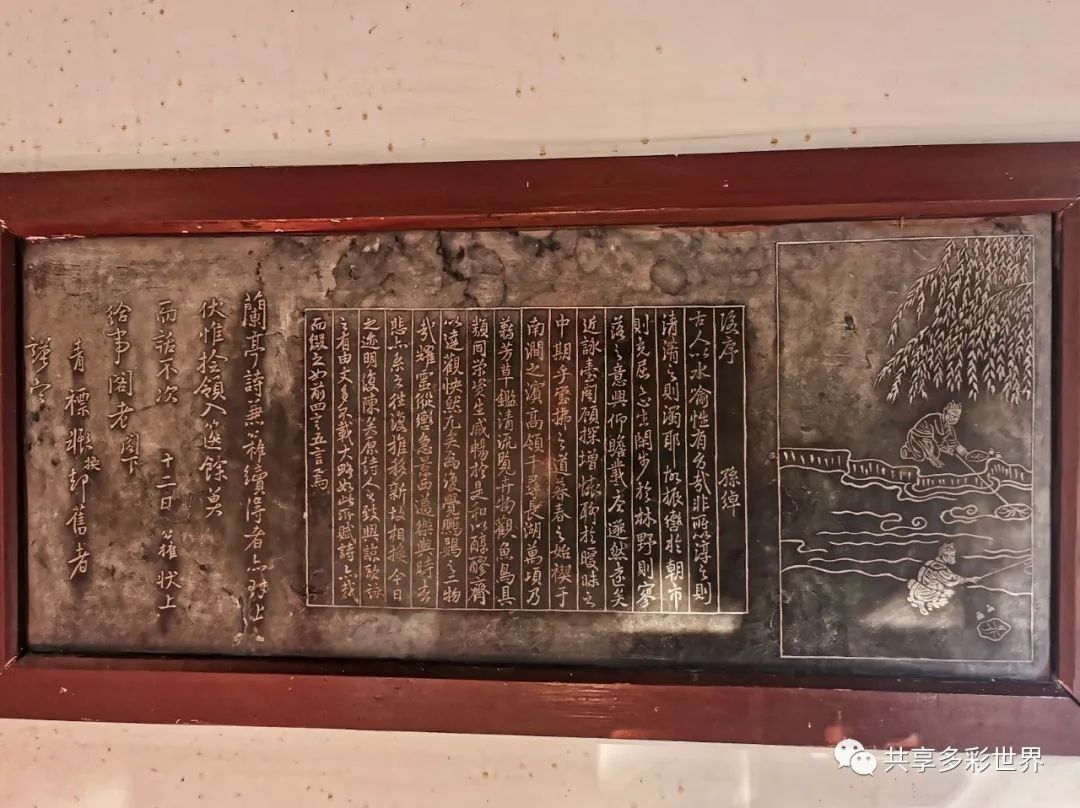 後序 孫綽
古人以水喻性有旨哉非所以淳之則
清淆之則濁耶 故振轡於朝市
則充屈之心生閑步於林野則寥
落之意興仰瞻羲唐邈然遠矣
近詠臺閣顧探增懷聊於曖昧之
中期乎瑩拂之道暮春之始禊于
南澗之濱高領千尋長湖萬頃乃
藉芳草鑑清流覽卉物觀魚鳥具
類同榮資生咸暢於是和以醇醪齊
以達觀快然兀矣焉復覺鵬鷃之二物
哉耀靈縱轡急景西邁樂與時去
悲亦系之往復推移新故相換今日
之迹明復陳矣原詩人之致興諒歌詠
之有由文多不載大略如此所賦詩亦裁
而綴之如前四言五言焉
蘭亭詩並雜續得者亦附上
伏惟捡領入篋餘莫
而話不次 十二日 狀上
給事閣老閣下
青標 換却舊者
謹空
共享多彩世界